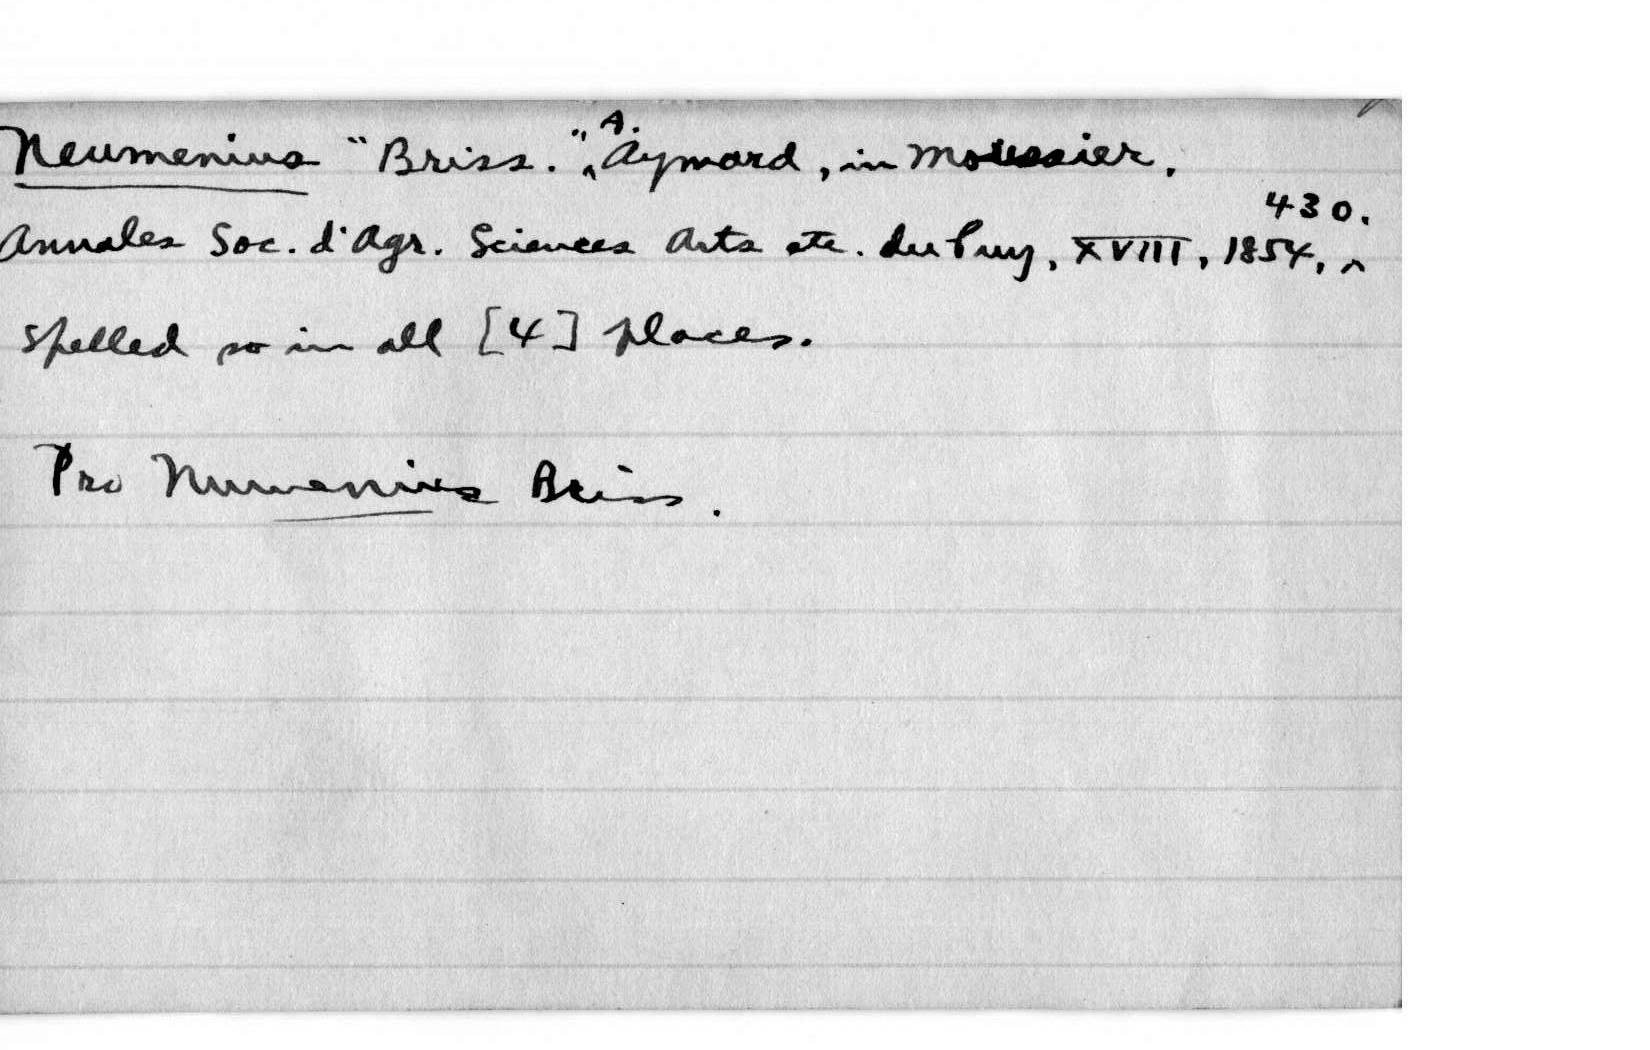 Neumenius "Briss.", A. Aymard, in Moussier,
Annales Soc. d'Agr. Sciences Arts etc. du Puy, XVIII, 1854, 430.
spelled so in all [4] places.
Pro Numenius Briss.